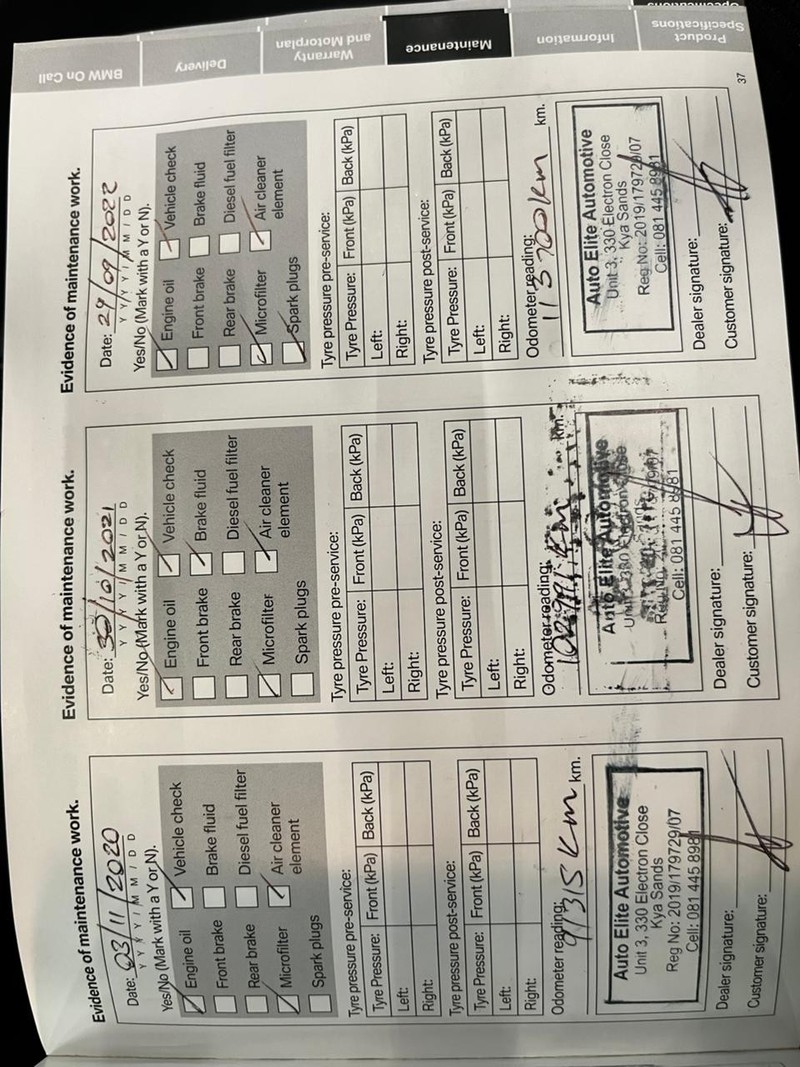 Evidence of maintenance work.
Date: 03/11/2020
Y Y Y Y / M M / D D
Yes/No (Mark with a Y or N).
Engine oil Vehicle check
Front brake Brake fluid
Rear brake Diesel fuel filter
Microfilter Air cleaner
element
Spark plugs
Tyre pressure pre-service:
Tyre Pressure: Front (kPa) Back (kPa)
Left:
Right:
Tyre pressure post-service:
Tyre Pressure: Front (kPa) Back (kPa)
Left:
Right:
Odometer reading:
91315 km km.
Auto Elite Automotive
Unit 3, 330 Electron Close
Kya Sands
Reg No: 2019/179729/07
Cell: 081 445 8981
Dealer signature:
Customer signature:
Evidence of maintenance work.
Date: 30/10/2021
Y Y Y Y / M M / D D
Yes/No (Mark with a Y or N).
Engine oil Vehicle check
Front brake Brake fluid
Rear brake Diesel fuel filter
Microfilter Air cleaner
element
Spark plugs
Tyre pressure pre-service:
Tyre Pressure: Front (kPa) Back (kPa)
Left:
Right:
Tyre pressure post-service:
Tyre Pressure: Front (kPa) Back (kPa)
Left:
Right:
Odometer reading:
km km.
Auto Elite Automotive
Unit 3, 330 Electron Close
Cell: 081 445 8981
Dealer signature:
Customer signature:
Evidence of maintenance work.
Date: 29/09/2022
Y Y Y Y / M M / D D
Yes/No (Mark with a Y or N).
Engine oil Vehicle check
Front brake Brake fluid
Rear brake Diesel fuel filter
Microfilter Air cleaner
element
Spark plugs
Tyre pressure pre-service:
Tyre Pressure: Front (kPa) Back (kPa)
Left:
Right:
Tyre pressure post-service:
Tyre Pressure: Front (kPa) Back (kPa)
Left:
Right:
Odometer reading:
113700km km.
Auto Elite Automotive
Unit 3, 330 Electron Close
Kya Sands
Reg No: 2019/179729/07
Cell: 081 445 8981
Dealer signature:
Customer signature:
37
BMW On Call
Delivery
Warranty
and Motorplan
Maintenance
Information
Product
Specifications
Specifications